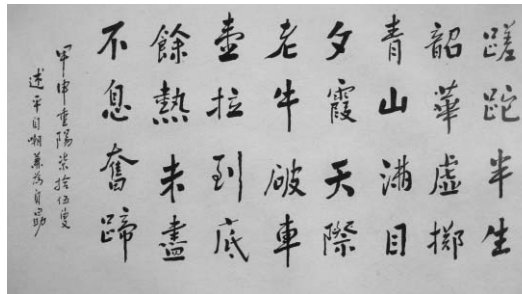 蹉跎半生
韶華虛擲
青山滿目
夕霞天際
老牛破車
壺拉到底
餘熱未盡
不息奮蹄
甲申重陽柒拾伍叟
述平自嘲兼為自勗